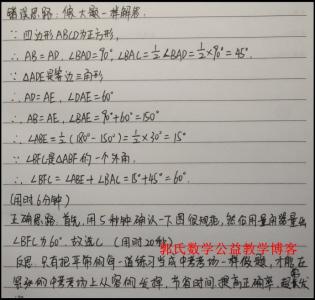 错误思路:像大题一样解答.
∵四边形ABCD为正方形,
∴AB=AD, ∠BAD=90° ∠BAC=½∠BAD=½×90°=45°.
∵△ADE是等边三角形
∴AD=AE, ∠DAE=60°
∴AB=AE, ∠BAE=90°+60°=150°
∴∠ABE=½(180°-150°)=½×30°=15°
∵∠BFC是△ABF的一个外角.
∴∠BFC=∠ABE+∠BAC=15°+45°=60°.
(用时6分钟)
正确思路:首先,用5秒钟确认一下图很规范,然后用量角器量出
∠BFC为60°.故选C (用时20秒)
郭氏数学公益教学博客
反思:只有把平常的每一道练习当成中考考场一样做题,才能在
紧张的中考考场上从容的发挥,节省时间,提高正确率,